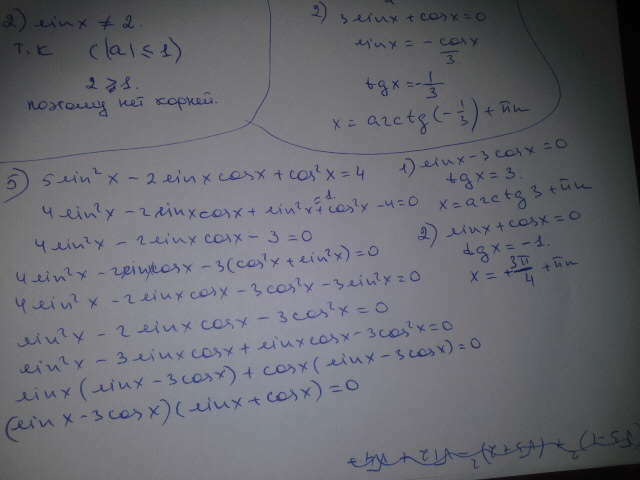 2) sinx ≠ 2.
т.к (|a| ≤ 1)
2 ⩾ 1.
поэтому нет корней.
2)
3sinx + cosx = 0
sinx = - cosx/3
tgx = -1/3
x = arctg(-1/3) + πn
5) 5sin²x - 2sinxcosx + cos²x = 4
4sin²x - 2sinxcosx + sin²x + cos²x - 4 = 0
=1.
4sin²x - 2sinxcosx - 3 = 0
4sin²x - 2sinxcosx - 3(cos²x + sin²x) = 0
4sin²x - 2sinxcosx - 3cos²x - 3sin²x = 0
sin²x - 2sinxcosx - 3cos²x = 0
sin²x - 3sinxcosx + sinxcosx - 3cos²x = 0
sinx(sinx - 3cosx) + cosx(sinx - 3cosx) = 0
(sinx - 3cosx)(sinx + cosx) = 0
1) sinx - 3cosx = 0
tgx = 3.
x = arctg3 + πn
2) sinx + cosx = 0
tgx = -1.
x = +3π/4 + πn